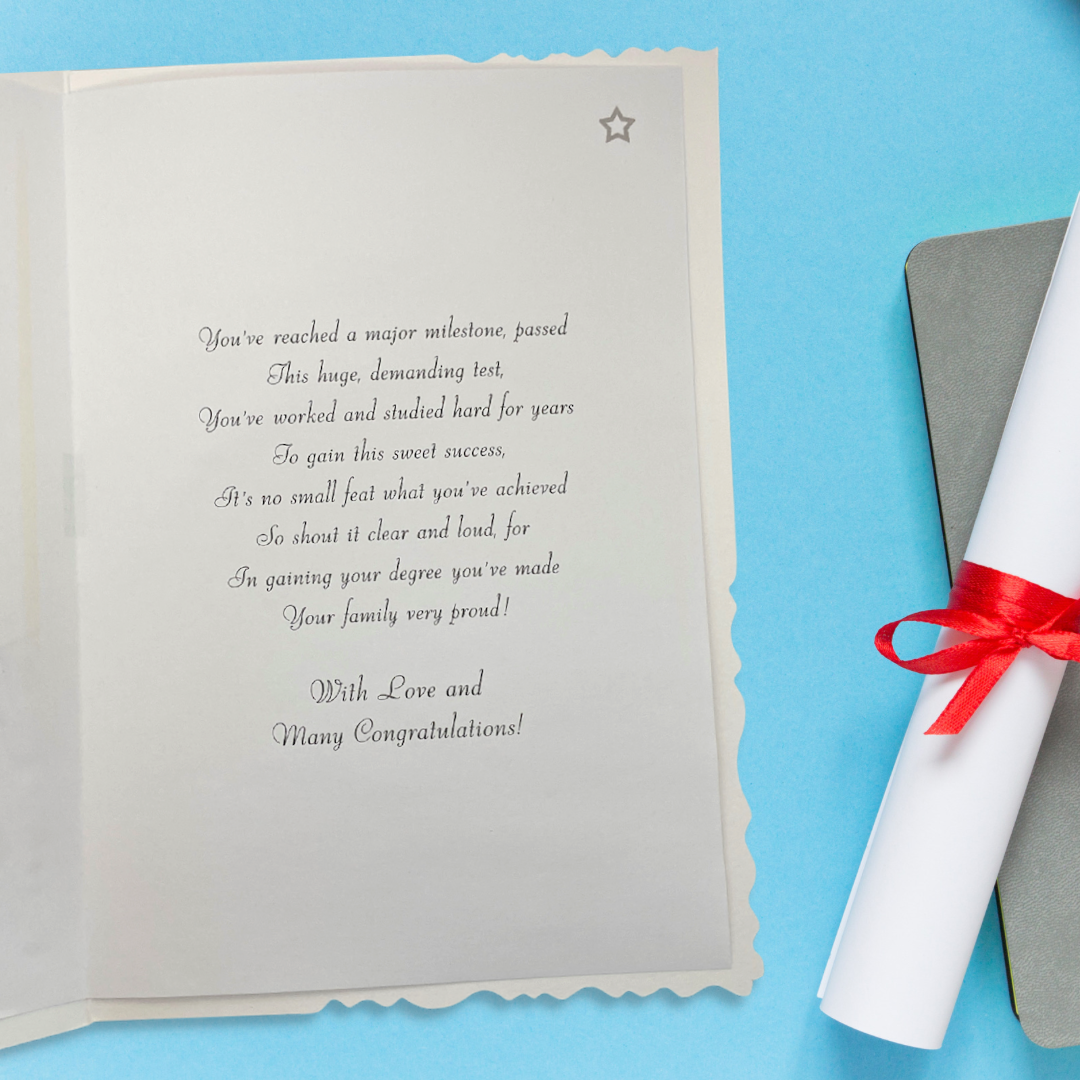 You've reached a major milestone, passed
This huge, demanding test,
You've worked and studied hard for years
To gain this sweet success,
It's no small feat what you've achieved
So shout it clear and loud, for
In gaining your degree you've made
Your family very proud!
With Love and
Many Congratulations!